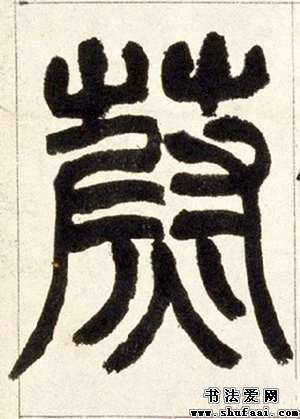 蔚
书法爱网
www.shufaai.com